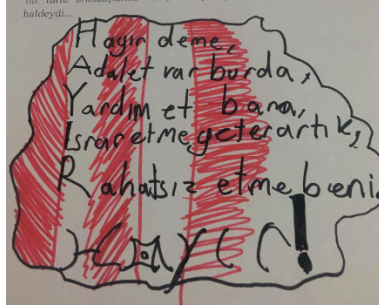 haldeydi...
Hayır deme,
Adalet var burda,
Yardım et bana,
Israr etme, yeter artık,
Rahatsız etme beni